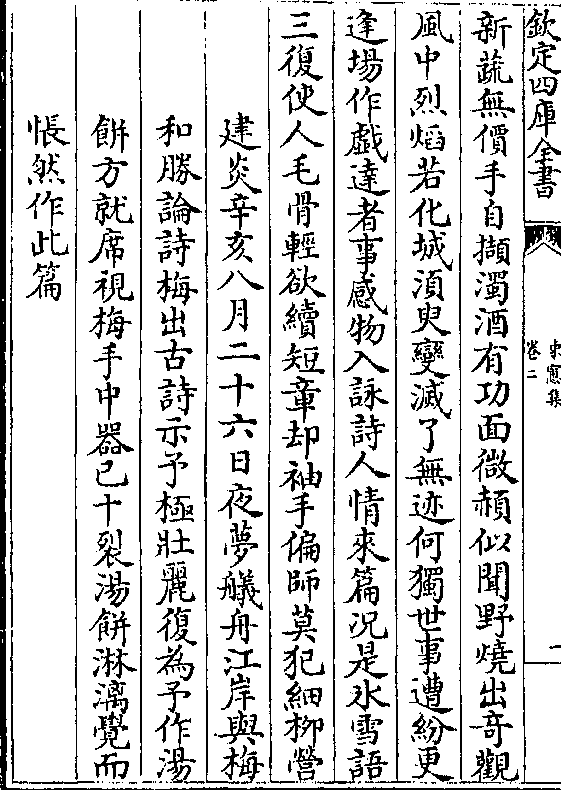 欽定四庫全書
東窻集
卷二
一
新蔬無價手自擷濁酒有功面微頳似聞野燒出奇觀
風中烈熖若化城湏臾變滅了無迹何獨世事遭紛更
逢塲作戲達者事感物入詠詩人情來篇況是氷雪語
三復使人毛骨輕欲續短章却袖手偏師莫犯細栁營
建炎辛亥八月二十六日夜夢艤舟江岸與梅
和勝論詩梅出古詩示予極壯麗復為予作湯
餅方就席視梅手中器已十裂湯餅淋漓覺而
悵然作此篇